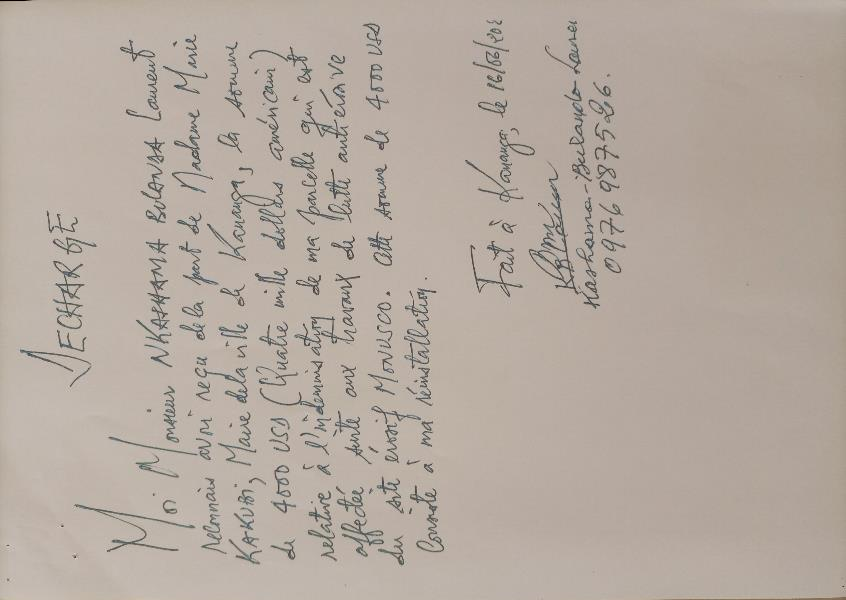 DECHARGE
Moi Monsieur NKASHAMA BULANDA Laurent
reconnais avoir reçu de la part de Madame Marie
KAKUBI, Maire de la ville de Kananga, la somme
de 4000 USD (Quatre mille dollars américain)
relative à l'indemnisation de ma parcelle qui est
affectée suite aux travaux de lutte antiérosive
du site érosif MONUSCO. Cette somme de 4000 USD
Consiste à ma réinstallation.
Fait à Kananga, le 16/06/202
Kashama-Bulanda Laurent
0976987526.